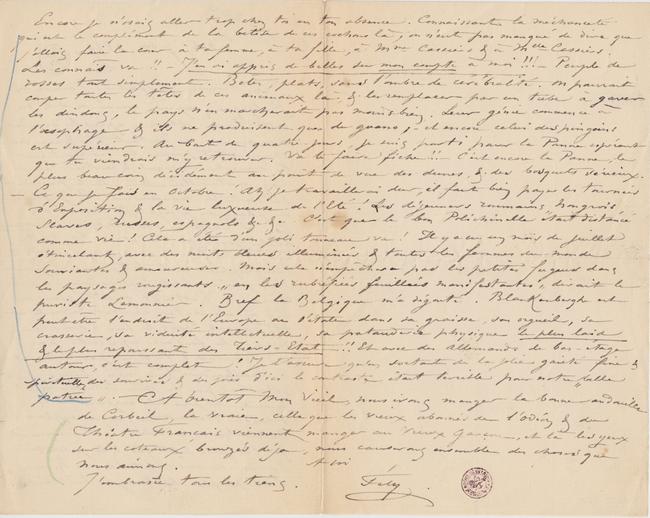 Encore je n'osais aller trop chez toi en ton absence. Connaissant la méchanceté
qui est le complément de la bêtise de ces cochons là, on n'eut pas manqué de dire que
j'allais faire la cour à ta femme, à ta fille, à Mme Cassiers & à Melle Cassiers.
Les connais va !! – J'en ai appris de belles sur mon compte à moi !!! – Peuple de
rosses tout simplement. Bêtes, plats, sans l'ombre de cérébralité. On pourrait
couper toutes les têtes de ces animaux là & les remplacer par un tube à gaver
les dindons, le pays n'en marcherait pas moins bien. Leur génie commence à
l'espillage & ils ne produisent que du guano, – et encore celui des pingouins
est supérieur. Au bout de quatre jours, je suis parti pour la Panne espérant
que tu viendrais m'y retrouver. Va te faire fiche !! C'est encore la Panne, le
plus beau coin décidément au point de vue des dunes, & des bosquets
– Ce que je fais en Octobre ! Ah je travaille dur, il faut bien payer les tournées
d'Exposition & la vie luxueuse de l'Eté ! Les déjeuners roumains, hongrois
slaves, russes, espagnols & & C'est que le bon Polichinelle était distancé
comme vie ! Cela a été d'un joli tonneau va ! Il y a eu un mois de juillet
étincelant, avec des nuits bleues illuminées & toutes les femmes du monde
souriantes & amoureuses. Mais cela n'empêchera pas les petites fugues dans
les paysages rougissants, „ en les rubéfiées feuilles mortifiantes, disait le
puriste Lemonnier. Bref la Belgique m'a dégoûté. Blankenbergh est
peut-être l'endroit de l'Europe où s'étale dans sa graisse, son orgueil, sa
crasserie, sa viduité intellectuelle, sa patauderie physique le plus laid
& le plus repoussant des Tiers-Etat – !! Et avec des Allemands de bas-étage
autour, c'est complet ! Je t'assure qu'en sortant de la jolie gaieté fine &
spirituelle des sourires & des joies d'ici le contraste était terrible pour notre belle
patrie ". Et bientôt Mon Vieil, nous irons manger la bonne andouille
de Corbeil, la vraie, celle que les vieux abonnés de l'Odéon & du
Théâtre Français viennent manger au Vieux Garçon, et là les yeux
sur les coteaux bronzés déjà, nous causerons ensemble des choses que
nous aimons. A toi
J'embrasse tous les tiens. Fély